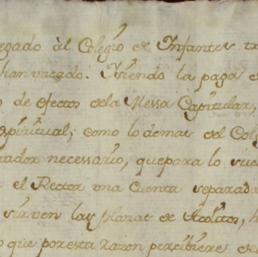 egado àl Colegio de Infantes
han vacado. Siendo la paga
de efectos dela Messa Capitular,
spiritual; como lo demas del Cole
ador necesario, que para lo
el Rector una Cuenta separada
sirven las plazas de Acolitos,
que por esta razon percibiere